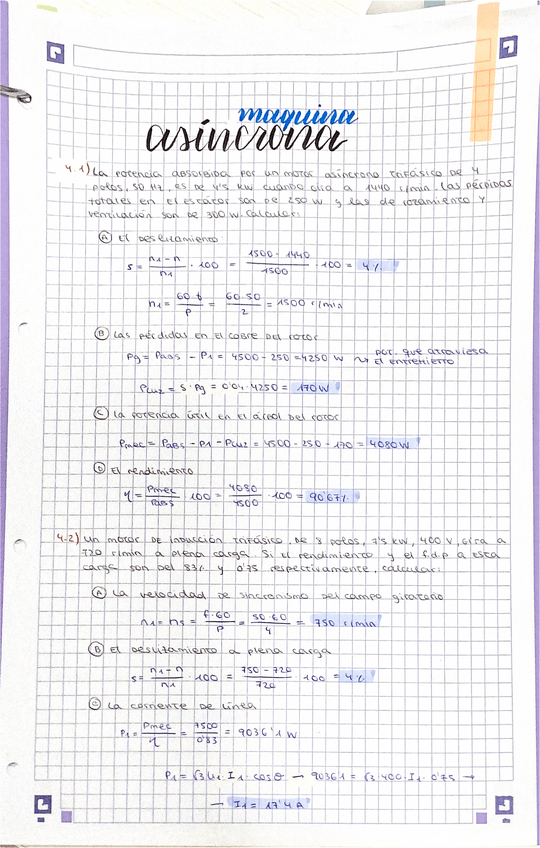 maquina
asíncrona
4.1) La potencia absorbida por un motor asíncrono trifásico de 4
polos, 50 Hz, es de 4'5 kW cuando gira a 1440 r/min. Las pérdidas
totales en el estátor son de 250 W y las de rozamiento y
ventilación son de 300 W. Calcular:
A) El deslizamiento
s = (n1 - n)/n1 · 100 = (1500 - 1440)/1500 · 100 = 4%
n1 = 60·f/p = 60·50/2 = 1500 r/min
B) Las pérdidas en el cobre del rotor
Pg = Pabs - P1 = 4500 - 250 = 4250 W → pot. que atraviesa
el entrehierro
Pcu2 = s · Pg = 0'04 · 4250 = 170 W
C) La potencia útil en el árbol del rotor
Pmec = Pabs - P1 - Pcu2 = 4500 - 250 - 170 = 4080 W
D) El rendimiento
η = Pmec/Pabs · 100 = 4080/4500 · 100 = 90'67%
4.2) Un motor de inducción trifásico, de 8 polos, 7'5 kW, 400 V, gira a
720 r/min a plena carga. Si el rendimiento y el f.d.p a esta
carga son del 83% y 0'75 respectivamente, calcular:
A) La velocidad de sincronismo del campo giratorio
n1 = ns = f·60/p = 50·60/4 = 750 r/min
B) El deslizamiento a plena carga
s = (n1 - n)/n1 · 100 = (750 - 720)/720 · 100 = 4%
C) La corriente de línea
P1 = Pmec/η = 7500/0'83 = 9036'1 W
P1 = √3 U1 · I1 · cos θ → 9036'1 = √3 · 400 · I1 · 0'75 →
→ I1 = 17'4 A